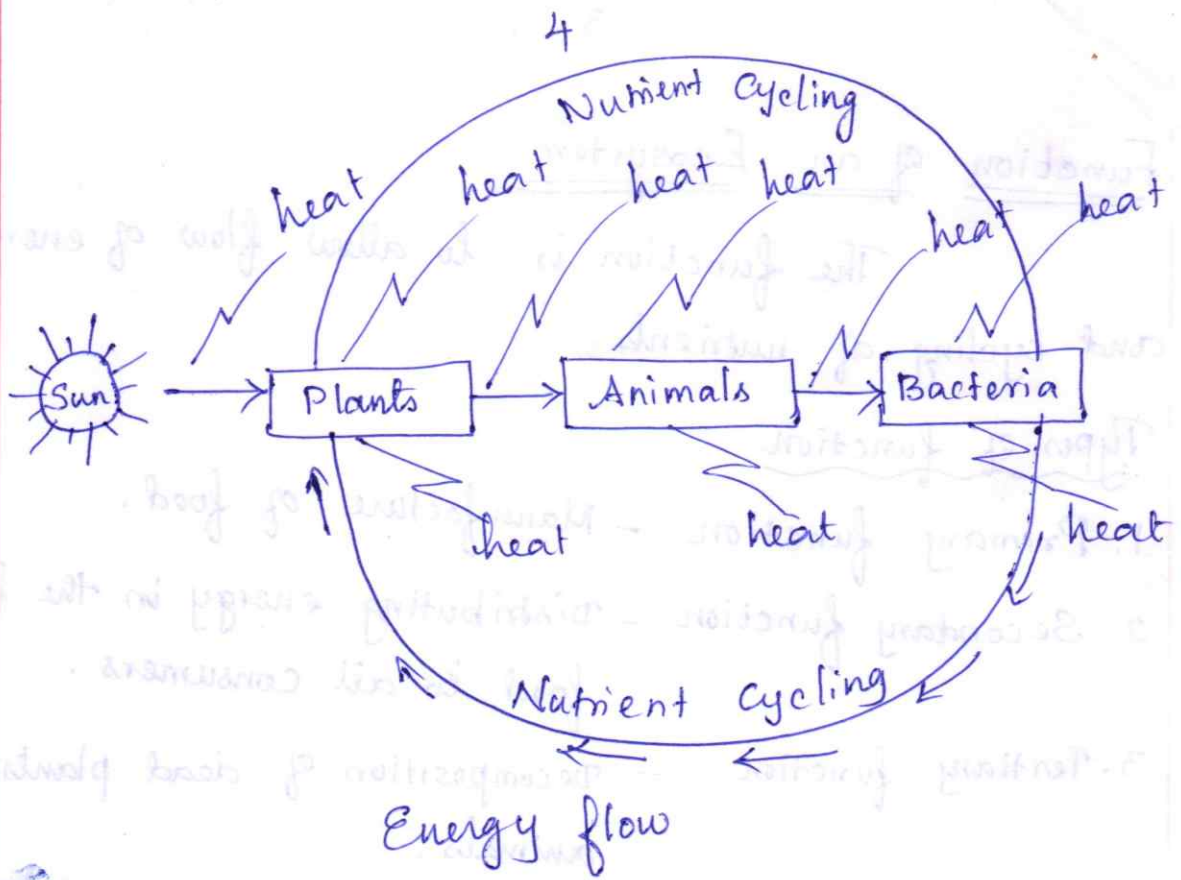 4
Nutrient Cycling
heat heat heat heat heat heat
Sun Plants Animals Bacteria
heat heat heat
Nutrient Cycling
Energy flow